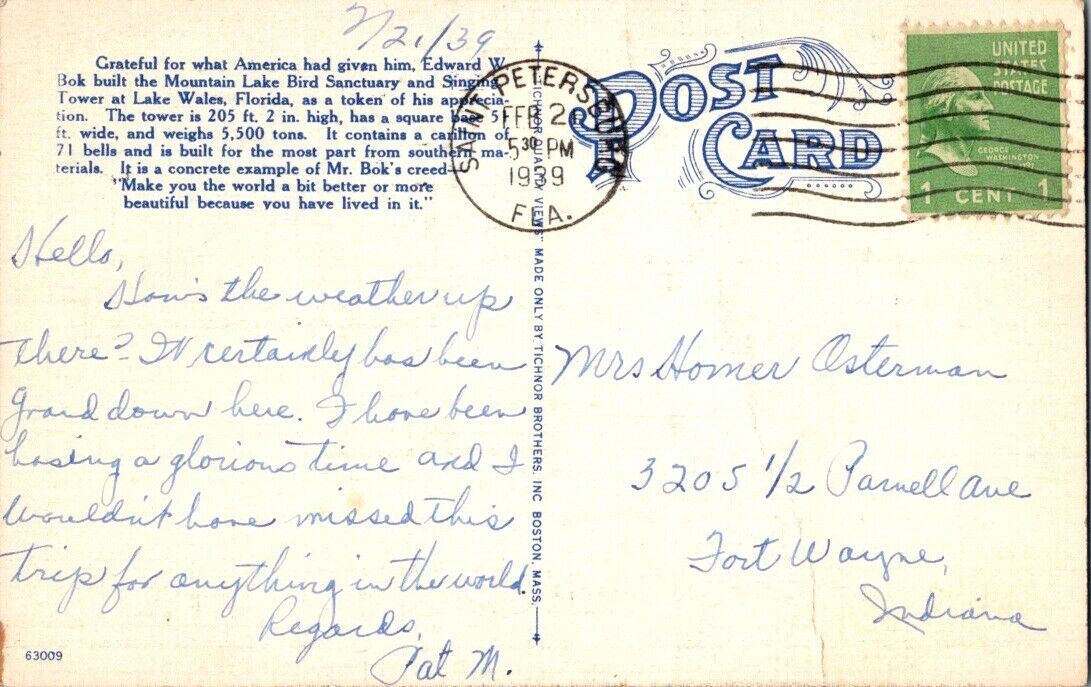 2/21/39
Grateful for what America had given him, Edward W.
Bok built the Mountain Lake Bird Sanctuary and Singing
Tower at Lake Wales, Florida, as a token of his apprecia-
tion. The tower is 205 ft. 2 in. high, has a square base 51
ft. wide, and weighs 5,500 tons. It contains a carillon of
71 bells and is built for the most part from southern ma-
terials. It is a concrete example of Mr. Bok's creed—
"Make you the world a bit better or more
beautiful because you have lived in it."
SAINT PETERSBURG
FEB 21
5 30 PM
1939
FLA.
POST
CARD
UNITED
STATES
POSTAGE
GEORGE
WASHINGTON
1 CENT 1
Hello,
How's the weather up
there? It certainly has been
grand down here. I have been
having a glorious time and I
wouldn't have missed this
trip for anything in the world.
Regards,
Pat M.
VIEWS" MADE ONLY BY TICHNOR BROTHERS, INC. BOSTON, MASS.
Mrs Homer Osterman
3205 1/2 Parnell Ave
Fort Wayne,
Indiana
63009